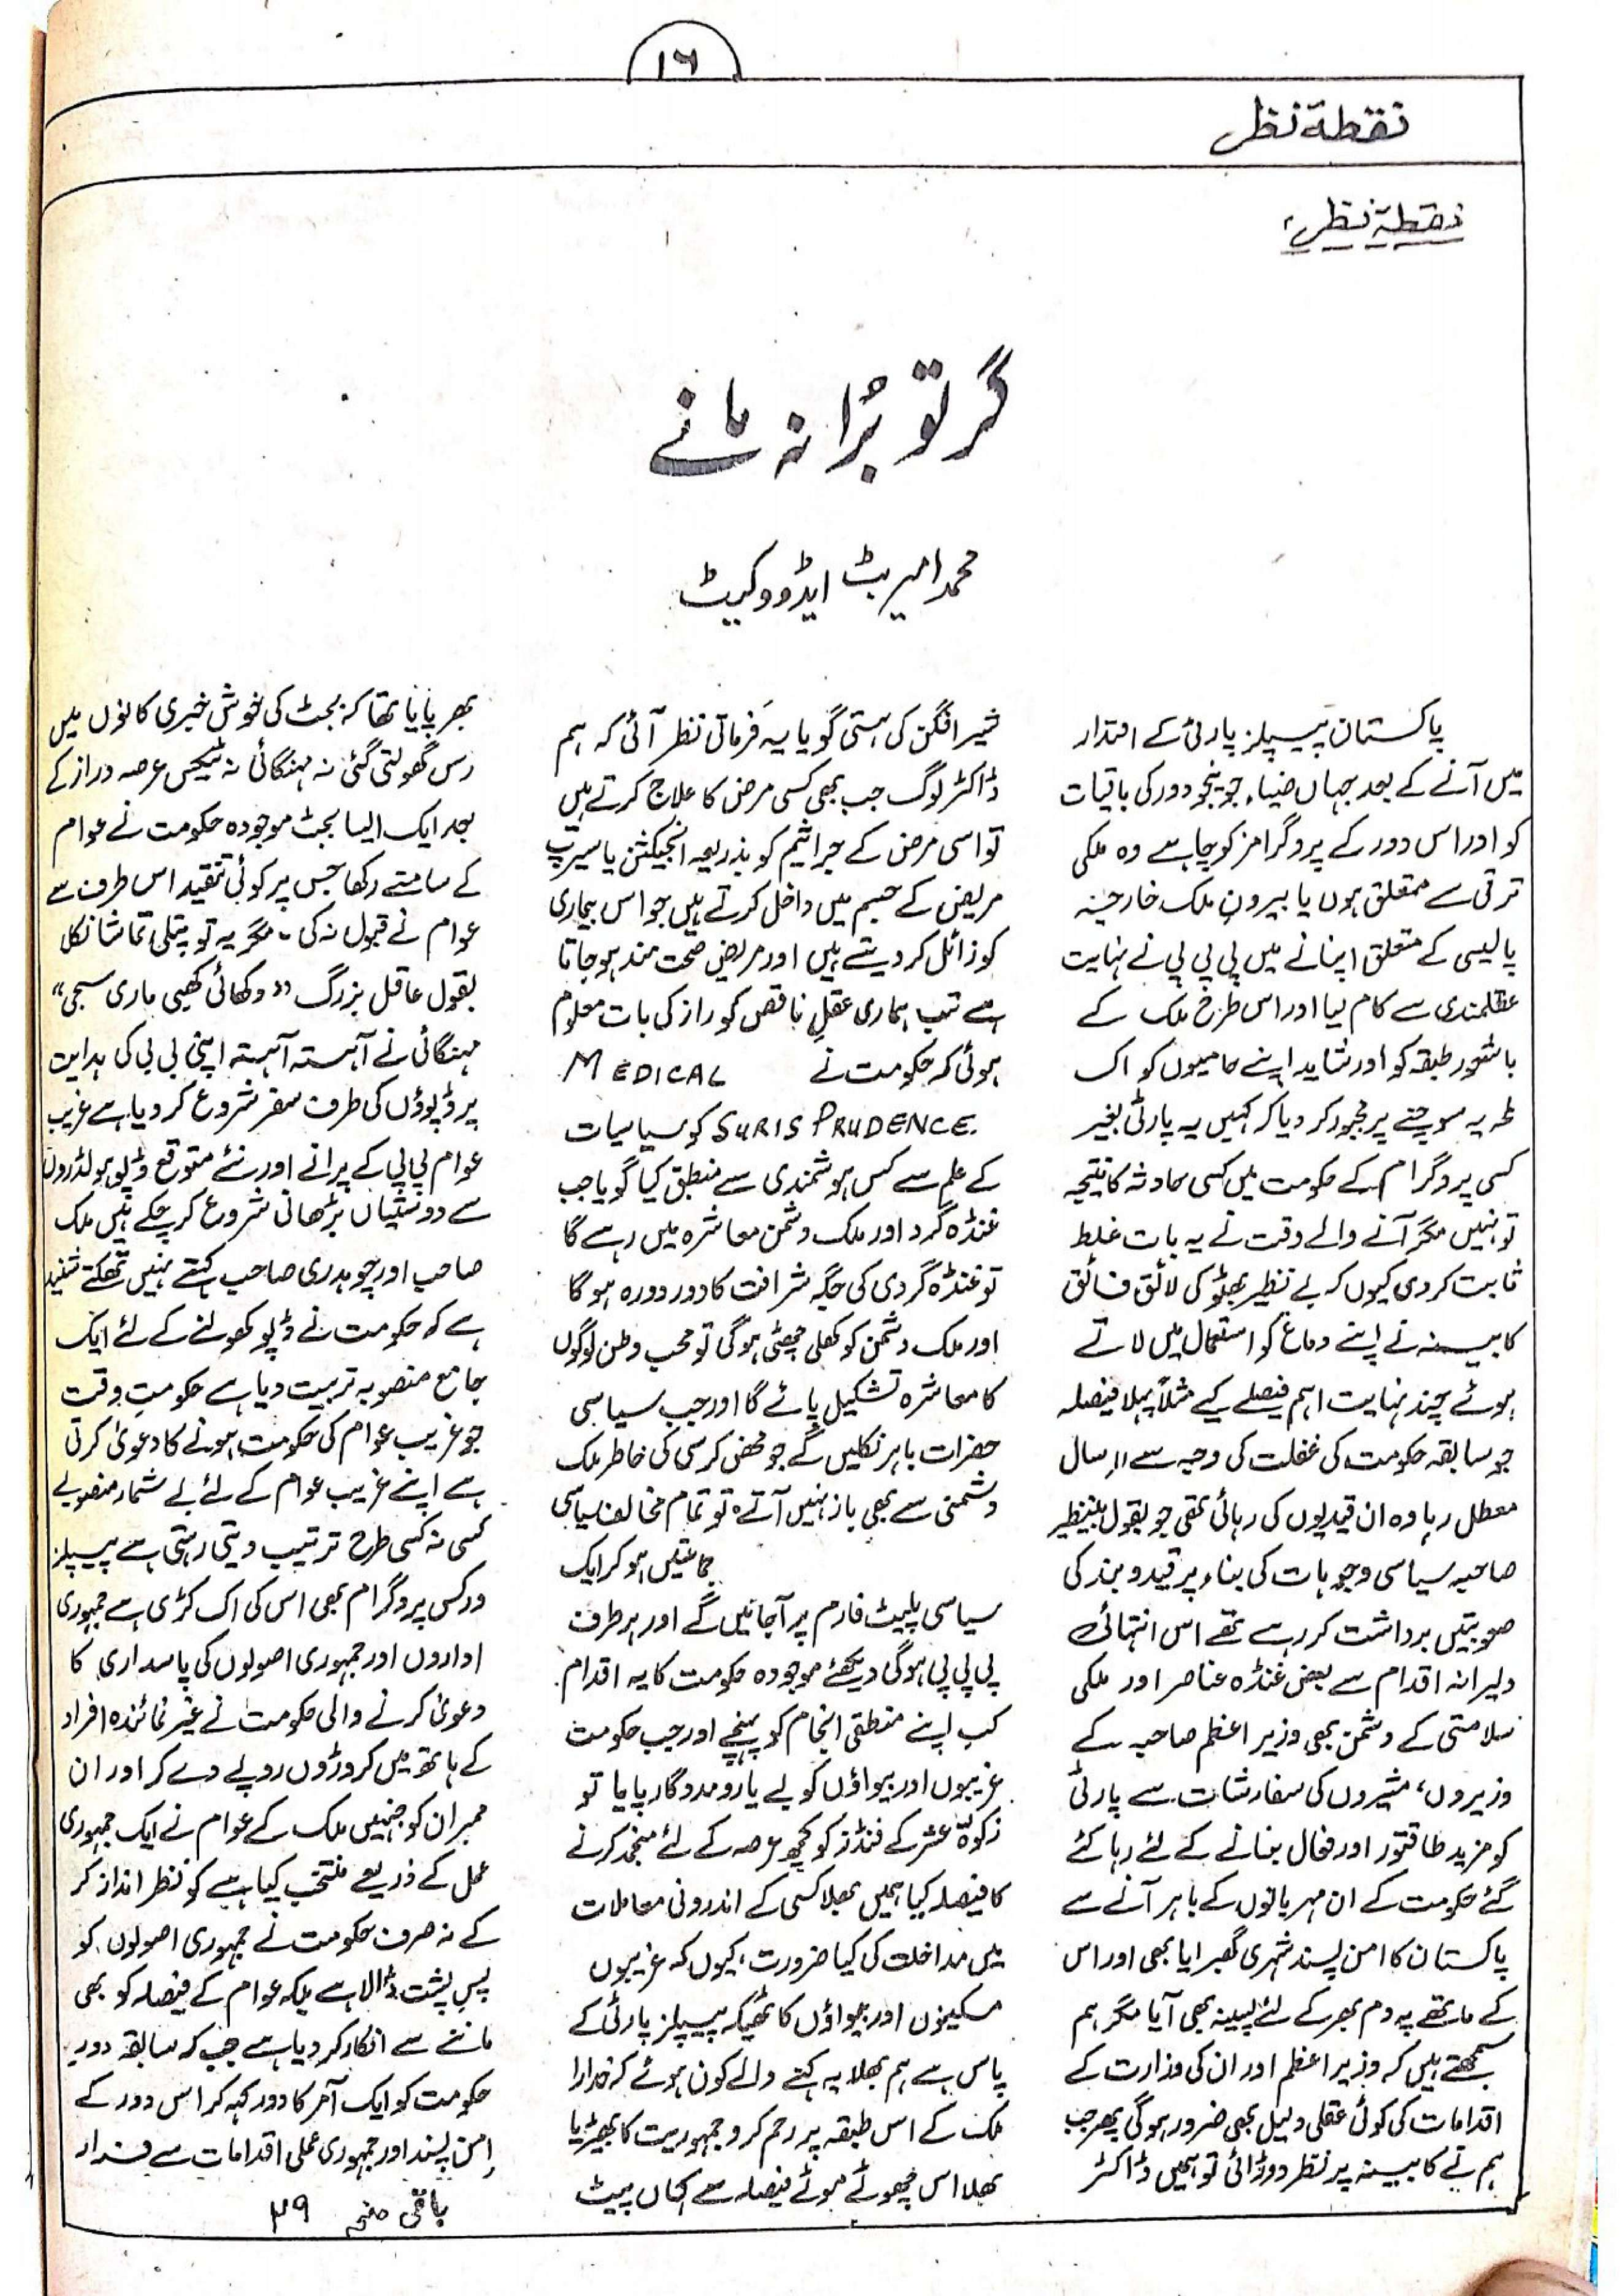 ١٦
نقطۂ نظر
نقطۂ نظر
گر تو بُرا نہ مانے
محمد امیر بٹ ایڈووکیٹ
پاکستان پیپلز پارٹی کے اقتدار
میں آنے کے بعد جہاں ضیاء جونیجو دور کی باقیات
کو اور اس دور کے پروگرامز کو چاہے وہ ملکی
ترقی سے متعلق ہوں یا بیرونِ ملک خارجہ
پالیسی کے متعلق اپنانے میں پی پی پی نے نہایت
عقلمندی سے کام لیا اور اس طرح ملک کے
باشعور طبقہ کو اور شاید اپنے حامیوں کو اک
طرح یہ سوچنے پر مجبور کر دیا کہ کہیں یہ پارٹی بغیر
کسی پروگرام کے حکومت میں کسی حادثہ کا نتیجہ
تو نہیں مگر آنے والے وقت نے یہ بات غلط
ثابت کر دی کیوں کہ بے نظیر بھٹو کی لائق فائق
کابینہ نے اپنے دماغ کو استعمال میں لاتے
ہوئے چند نہایت اہم فیصلے کیے مثلاً پہلا فیصلہ
جو سابقہ حکومت کی غفلت کی وجہ سے ۱۱ سال
معطل رہا وہ ان قیدیوں کی رہائی تھی جو بقول بینظیر
صاحبہ سیاسی وجوہات کی بناء پر قید و بند کی
صوبتیں برداشت کر رہے تھے اس انتہائی
دلیرانہ اقدام سے بعض غنڈہ عناصر اور ملکی
سلامتی کے دشمن بھی وزیر اعظم صاحبہ کے
وزیروں، مشیروں کی سفارشات سے پارٹی
کو مزید طاقتور اور فعال بنانے کے لئے رہا کئے
گئے حکومت کے ان مہربانوں کے باہر آنے سے
پاکستان کا امن پسند شہری گھبرایا بھی اور اس
کے ماتھے پہ دم بھر کے لئے پسینہ بھی آیا مگر ہم
سمجھتے ہیں کہ وزیر اعظم اور ان کی وزارت کے
اقدامات کی کوئی عقلی دلیل بھی ضرور ہوگی پھر جب
ہم نے کابینہ پر نظر دوڑائی تو ہمیں ڈاکٹر
شیر افگن کی ہستی گویا یہ فرماتی نظر آئی کہ ہم
ڈاکٹر لوگ جب بھی کسی مرض کا علاج کرتے ہیں
تو اسی مرض کے جراثیم کو بذریعہ انجیکشن یا سیرپ
مریض کے جسم میں داخل کرتے ہیں جو اس بیماری
کو زائل کر دیتے ہیں اور مریض صحت مند ہو جاتا
ہے تب ہماری عقلِ ناقص کو راز کی بات معلوم
ہوئی کہ حکومت نے MEDICAL
SURIS PRUDENCE. کو سیاسیات
کے علم سے کس ہوشمندی سے منطبق کیا گویا جب
غنڈہ گرد اور ملک دشمن معاشرہ میں رہے گا
تو غنڈہ گردی کی جگہ شرافت کا دور دورہ ہو گا
اور ملک دشمن کو کھلی چھٹی ہوگی تو محب وطن لوگوں
کا معاشرہ تشکیل پائے گا اور جب سیاسی
حضرات باہر نکلیں گے جو محض کرسی کی خاطر ملک
دشمنی سے بھی باز نہیں آتے تو تمام مخالف سیاسی
جماعتیں ہو کر ایک
سیاسی پلیٹ فارم پر آجائیں گے اور ہر طرف
پی پی پی ہوگی دیکھئے موجودہ حکومت کا یہ اقدام
کب اپنے منطقی انجام کو پہنچے اور جب حکومت
غریبوں اور بیواؤں کو بے یارومددگار پایا تو
زکوٰۃ عشر کے فنڈز کو کچھ عرصہ کے لئے منجمد کرنے
کا فیصلہ کیا ہمیں بھلا کسی کے اندرونی معاملات
میں مداخلت کی کیا ضرورت، کیوں کہ غریبوں
مسکینوں اور بیواؤں کا ٹھیکہ پیپلز پارٹی کے
پاس ہے ہم بھلا یہ کہنے والے کون ہوئے کہ خدارا
ملک کے اس طبقہ پر رحم کرو جمہوریت کا بھیڑیا
بھلا اس چھوٹے موٹے فیصلہ سے کہاں پیٹ
بھر پایا تھا کہ بجٹ کی خوش خبری کانوں میں
رس گھولتی گئی نہ مہنگائی نہ ٹیکس عرصہ دراز کے
بعد ایک ایسا بجٹ موجودہ حکومت نے عوام
کے سامنے رکھا جس پر کوئی تنقید اس طرف سے
عوام نے قبول نہ کی ۔ مگر یہ تو پتلی تماشا نکلا
بقول عاقل بزرگ "دکھائی کھبی ماری سجی"
مہنگائی نے آہستہ آہستہ اپنی بی بی کی ہدایت
پر ڈپوؤں کی طرف سفر شروع کر دیا ہے غریب
عوام پی پی کے پرانے اور نئے متوقع ڈپو ہولڈروں
سے دوستیاں بڑھانی شروع کر چکے ہیں ملک
صاحب اور چوہدری صاحب کہتے نہیں تھکتے شنید
ہے کہ حکومت نے ڈپو کھولنے کے لئے ایک
جامع منصوبہ تربیت دیا ہے حکومتِ وقت
جو غریب عوام کی حکومت ہونے کا دعویٰ کرتی
ہے اپنے غریب عوام کے لئے بے شمار منصوبے
کسی نہ کسی طرح ترتیب دیتی رہتی ہے پیپلز
ورکس پروگرام بھی اس کی اک کڑی ہے جمہوری
اداروں اور جمہوری اصولوں کی پاسداری کا
دعویٰ کرنے والی حکومت نے غیر نمائندہ افراد
کے ہاتھ میں کروڑوں روپے دے کر اور ان
ممبران کو جنہیں ملک کے عوام نے ایک جمہوری
عمل کے ذریعے منتخب کیا ہے کو نظر انداز کر
کے نہ صرف حکومت نے جمہوری اصولوں کو
پسِ پشت ڈالا ہے بلکہ عوام کے فیصلہ کو بھی
ماننے سے انکار کر دیا ہے جب کہ سابقہ دورِ
حکومت کو ایک آمر کا دور کہہ کر اس دور کے
امن پسند اور جمہوری عملی اقدامات سے فرار
باقی صفحہ ۴۹